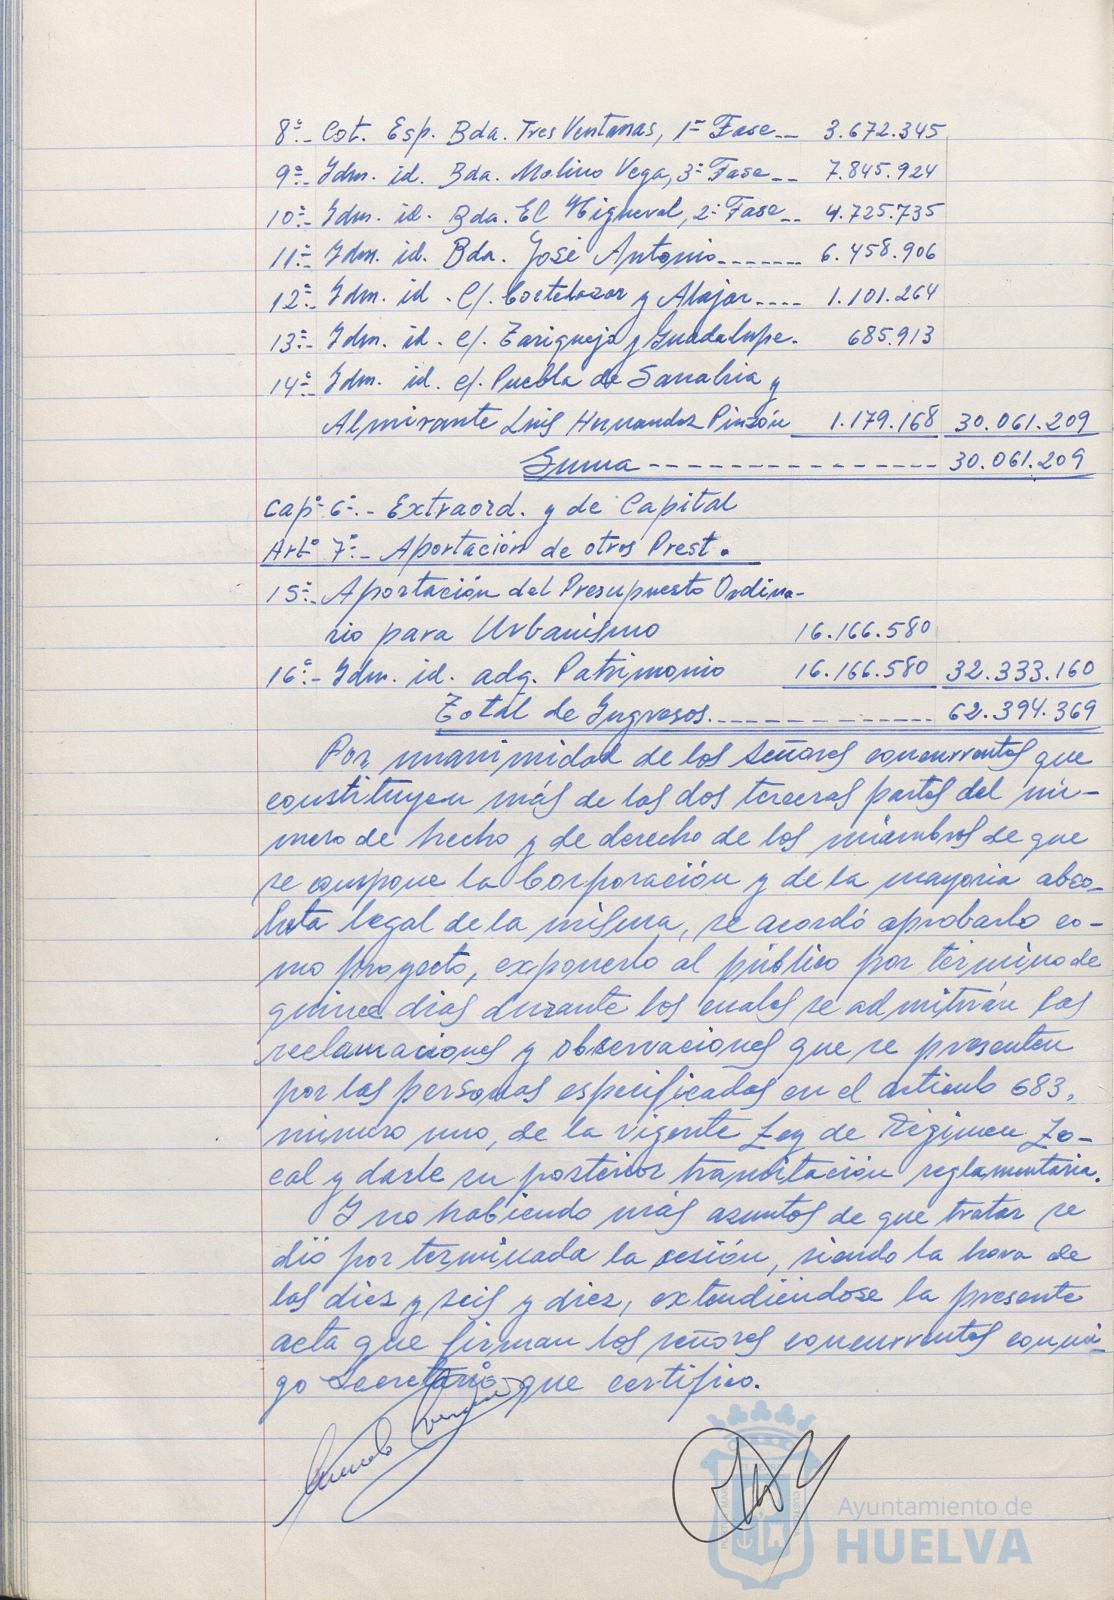 8º.- Cot. Esp. Bda. Tres Ventanas, 1ª Fase -- 3.672.345
9º.- Idm. id. Bda. Molino Vega, 3ª Fase -- 7.845.924
10º.- Idm. id. Bda. El Higueral, 2ª Fase -- 4.725.735
11º.- Idm. id. Bda. José Antonio ------- 6.458.906
12º.- Idm. id. C/. Cortelazor y Alajar ---- 1.101.264
13º.- Idm. id. C/. Zariqueja y Guadalupe. 685.913
14º.- Idm. id. C/. Puebla de Sanabria y
Almirante Luis Hernandez Pinzón 1.179.168 30.061.209
Suma -------------- 30.061.209
Capº 6º.- Extraord. y de Capital
Artº 7º.- Aportación de otros Prest.
15º.- Aportación del Presupuesto Ordina-
rio para Urbanismo 16.166.580
16º.- Idm. id. adq. Patrimonio 16.166.580 32.333.160
Total de Ingresos ------------ 62.394.369
Por unanimidad de los señores concurrentes que
constituyen más de las dos terceras partes del nú-
mero de hecho y de derecho de los miembros de que
se compone la Corporación y de la mayoria abso-
luta legal de la misma, se acordó aprobarlo co-
mo proyecto, exponerlo al público por término de
quince dias durante los cuales se admitirán las
reclamaciones y observaciones que se presenten
por las personas especificadas en el articulo 683,
número uno, de la vigente Ley de Régimen Lo-
cal y darle su posterior tramitación reglamentaria.
Y no habiendo más asuntos de que tratar se
dió por terminada la sesión, siendo la hora de
las diez y seis y diez, extendiéndose la presente
acta que firman los señores concurrentes conmi-
go Secretario que certifico.
Ayuntamiento de
HUELVA